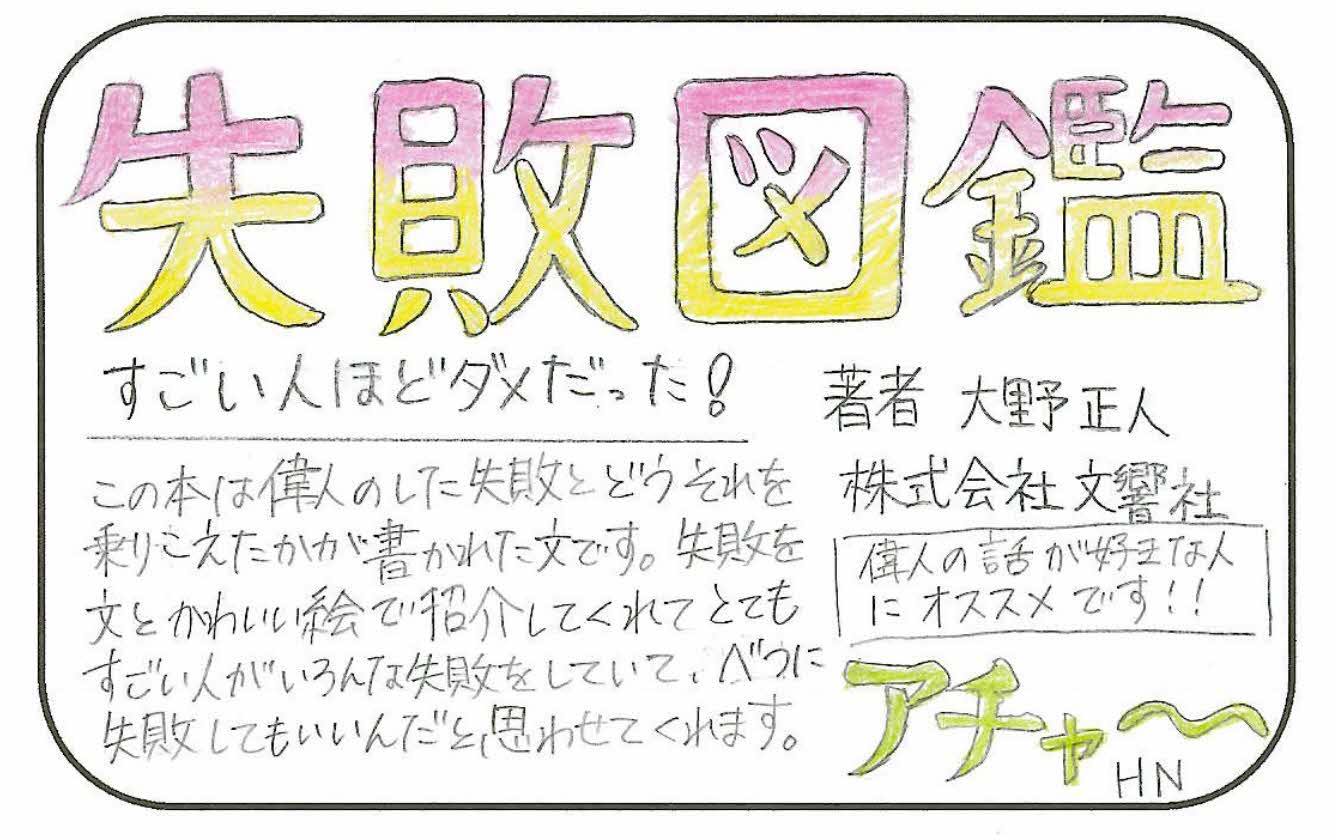 失敗図鑑
すごい人ほどダメだった!
著者 大野正人
株式会社文響社
この本は偉人のした失敗とどうそれを
乗りこえたかが書かれた文です。失敗を
文とかわいい絵で紹介してくれてとても
すごい人がいろんな失敗をしていて、べつに
失敗してもいいんだと思わせてくれます。
偉人の話が好きな人
にオススメです!!
アチャ〜
HN